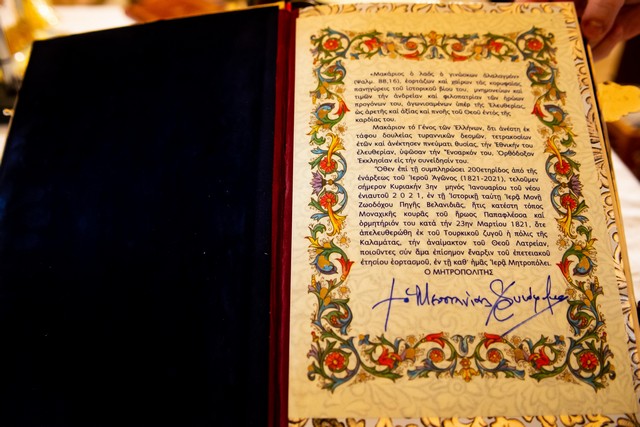 «Μακάριος ὁ λαὸς ὁ γινώσκων ἀλαλαγμόν»
(Ψαλμ. 88,16), ἑορτάζων καὶ χαίρων τάς κορυφαίας
πανηγύρεις τοῦ ἱστορικοῦ βίου του, μνημονεύων καὶ
τιμῶν τὴν ἀνδρείαν καὶ φιλοπατρίαν τῶν ἡρώων
προγόνων του, ἀγωνισαμένων ὑπὲρ τῆς Ἐλευθερίας,
ὡς ἀρετῆς καὶ ἀξίας καὶ πνοῆς τοῦ Θεοῦ ἐντός τῆς
καρδίας του.
Μακάριον τὸ Γένος τῶν Ἑλλήνων, ὅτι ἀνέστη ἐκ
τάφου δουλείας τυραννικῶν δεσμῶν, τετρακοσίων
ἐτῶν καὶ ἀνέκτησεν πνεύματι θυσίας, τὴν Ἐθνικήν του
ἐλευθερίαν, ὑψῶσαν τὴν Ἔναρκόν του, Ὀρθόδοξον
Ἐκκλησίαν εἰς τὴν συνείδησίν του.
Ὅθεν ἐπὶ τῇ συμπληρώσει 200ετηρίδος ἀπὸ τῆς
ἐνάρξεως τοῦ Ἱεροῦ Ἀγῶνος (1821-2021), τελοῦμεν
σήμερον Κυριακήν 3ην μηνὸς Ἰανουαρίου τοῦ νέου
ἐνιαυτοῦ 2021, ἐν τῇ Ἱστορικῇ ταύτῃ Ἱερᾷ Μονῇ
Ζωοδόχου Πηγῆς Βελανιδιᾶς, ἥτις κατέστη τόπος
Μοναχικῆς κουρᾶς τοῦ ἥρωος Παπαφλέσσα καὶ
ὁρμητήριόν του κατά τὴν 23ην Μαρτίου 1821, ὅτε
ἀπελευθερώθη ἐκ τοῦ Τουρκικοῦ ζυγοῦ ἡ πόλις τῆς
Καλαμάτας, τὴν ἀναίμακτον τοῦ Θεοῦ Λατρείαν,
ποιοῦντες σὺν ἅμα ἐπίσημον ἔναρξιν τοῦ ἐπετειακοῦ
ἐτησίου ἑορτασμοῦ, ἐν τῇ καθ' ἡμᾶς Ἱερᾷ Μητροπόλει.
Ο ΜΗΤΡΟΠΟΛΙΤΗΣ
ὁ Μεσσηνίας